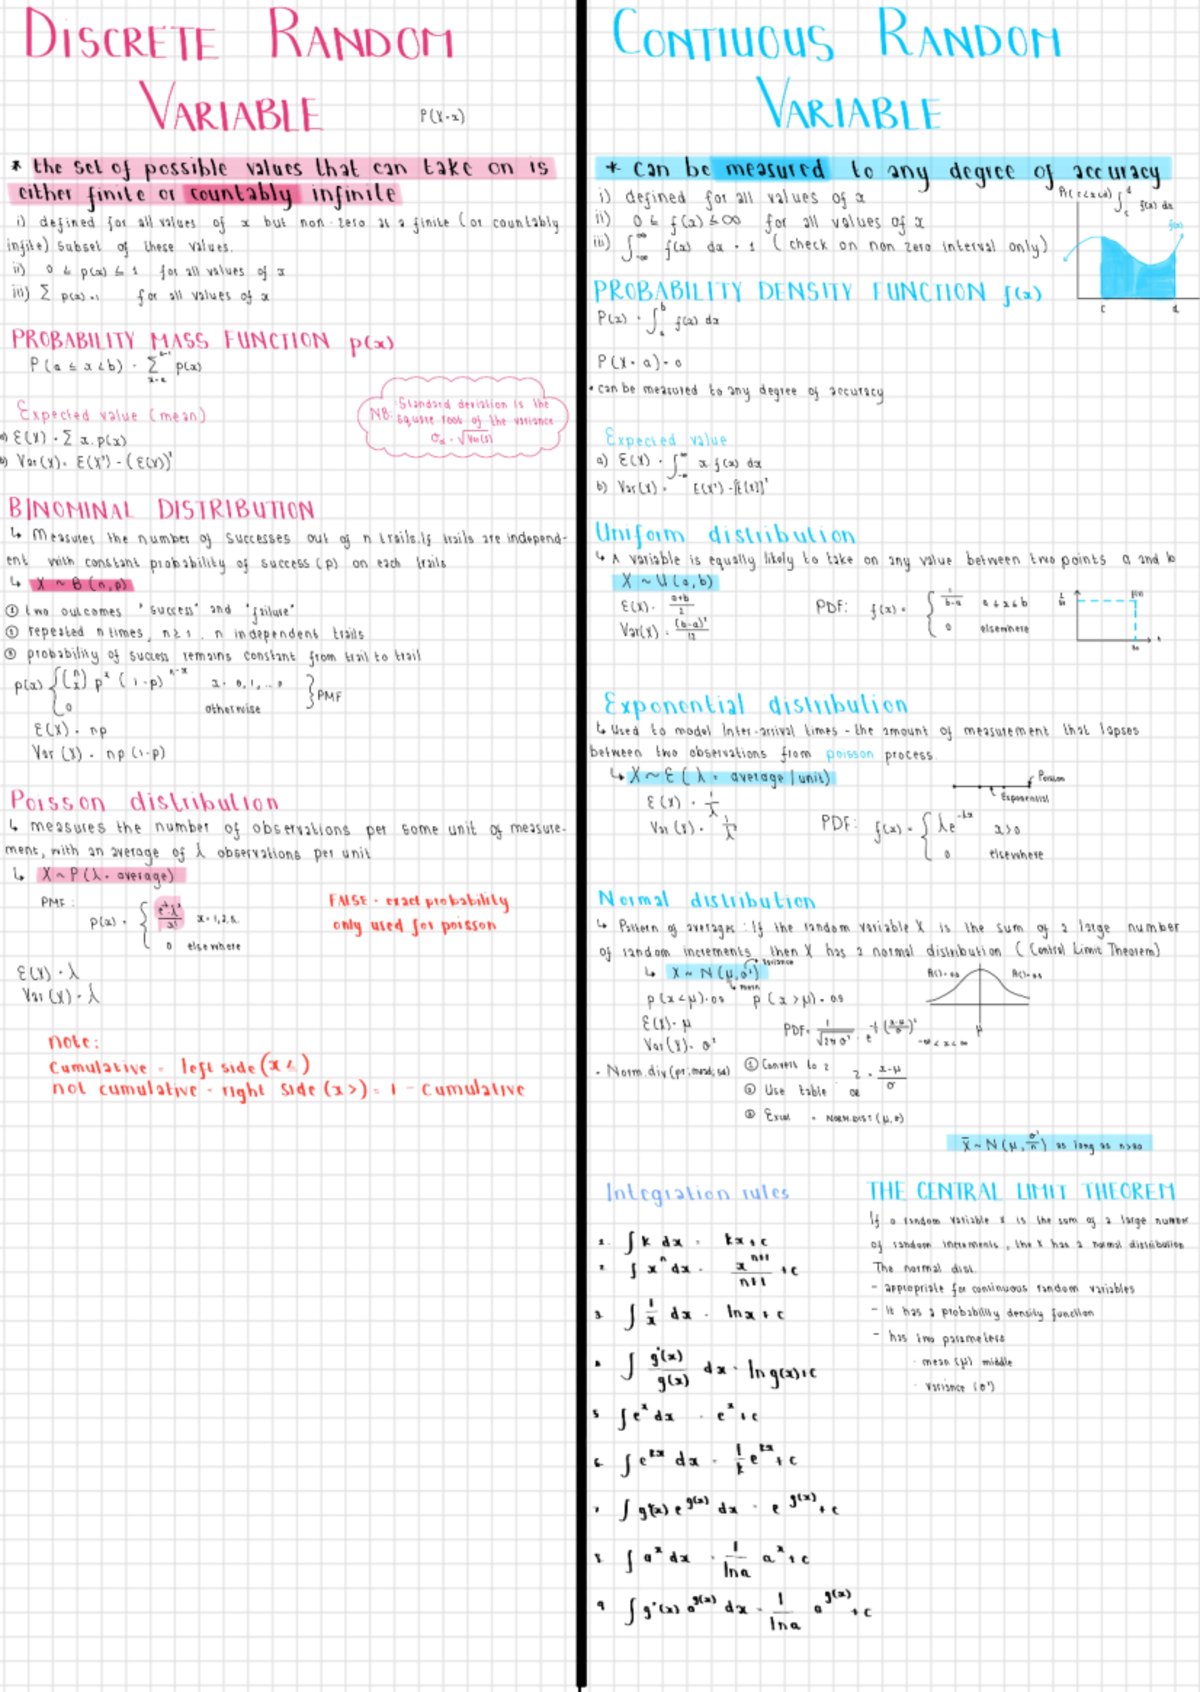 DISCRETE RANDOM
VARIABLE
P(X=x)
* the set of possible values that can take on is
either finite or countably infinite
i) defined for all values of x but non-zero at a finite (or countably
infite) subset of these values.
ii) 0 ≤ p(x) ≤ 1 for all values of x
iii) Σ p(x)=1 for all values of x
PROBABILITY MASS FUNCTION p(x)
P(a ≤ x < b) = Σ p(x)
Expected value (mean)
NB: Standard deviation is the
square root of the variance
σx = √Var(x)
a) E(X) = Σ x.p(x)
b) Var(X) = E(X²) - (E(X))²
BINOMINAL DISTRIBUTION
↳ Measures the number of successes out of n trails. If trails are independ-
ent with constant probability of success (p) on each trails
↳ X ~ B(n,p)
① two outcomes "success" and "failure"
② repeated n times, n≥1. n independent trails
③ probability of success remains constant from trail to trail
p(x) { (n x) p^x (1-p)^n-x x = 0,1,...n } PMF
0 otherwise
E(X) = np
Var (X) = np (1-p)
Poisson distribution
↳ measures the number of observations per some unit of measure-
ment, with an average of λ observations per unit
↳ X~P(λ = average)
PMF:
p(x) = { e^-λ λ^x / x! x = 1,2,3..
0 elsewhere
FALSE = exact probability
only used for poisson
E(X) = λ
Var (X) = λ
note:
Cumulative = left side (x ≤)
not cumulative = right side (x >) = 1 - Cumulative
CONTIUOUS RANDOM
VARIABLE
* can be measured to any degree of accuracy
i) defined for all values of x
ii) 0 ≤ f(x) ≤ ∞ for all values of x
iii) ∫ f(x) dx = 1 (check on non zero interval only)
Pr(c≤x≤d) ∫ f(x) dx
f(x)
c d
PROBABILITY DENSITY FUNCTION f(x)
P(x) = ∫ f(x) dx
P(X = a) = 0
• can be measured to any degree of accuracy
Expected value
a) E(X) = ∫ x f(x) dx
b) Var(X) = E(X²) - [E(X)]²
Uniform distribution
↳ A variable is equally likely to take on any value between two points a and b
X ~ U(a,b)
E(X) = a+b / 2
Var(X) = (b-a)² / 12
PDF: f(x) = { 1 / b-a a < x < b
0 elsewhere
Exponential distribution
↳ Used to model Inter-arrival times - the amount of measurement that lapses
between two observations from poisson process.
↳ X~E(λ = average/unit)
Poisson
Exponential
E(X) = 1/λ
Var (X) = 1/λ²
PDF: f(x) = { λe^-λx x>0
0 elsewhere
Normal distribution
↳ Pattern of averages: If the random variable X is the sum of a large number
of random increments, then X has a normal distribution (Central Limit Theorem)
↳ X ~ N(μ,σ²) variance
mean
p(x<μ)=0.5 p(x>μ) = 0.5
E(X) = μ
Var(X) = σ²
PDF = 1 / √2πσ² · e^-½ (x-μ / σ)² -∞ < x < ∞
μ
① Convert to z z = x-μ / σ
② Use table or
③ Excel = NORM.DIST (μ,σ)
X̄ ~ N(μ, σ²/n) as long as n>30
Integration rules
1. ∫ k dx = kx + c
2. ∫ x^n dx = x^n+1 / n+1 + c
3. ∫ 1/x dx = ln x + c
4. ∫ g'(x) / g(x) dx = ln g(x) + c
5. ∫ e^x dx = e^x + c
6. ∫ e^kx dx = 1/k e^kx + c
7. ∫ g'(x) e^g(x) dx = e^g(x) + c
8. ∫ a^x dx = 1/ln a a^x + c
9. ∫ g'(x) a^g(x) dx = 1/ln a a^g(x) + c
THE CENTRAL LIMIT THEOREM
If a random variable X is the sum of a large number
of random increments, the X has a normal distribution
The normal dist.
- appropriate for continuous random variables
- It has a probability density function
- has two parameters
· mean (μ) middle
· variance (σ²)